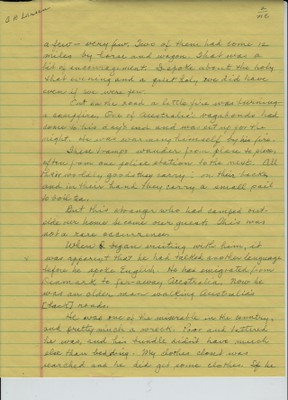 2
a few - very few. Two of them had come 12
miles by horse and wagon. That was a
bit of encouragement. I spoke about the baby
that evening and a quiet holy we did have
even if we were few.
Out on the road a little fire was burning
a campfire. One of Australia's vagabonds had
come to his day's end and was set up for the
night. He was warming himself by his fire.
These tramps wander from place to place,
often from one police station to the next. All
their worldly goods they carry: on their backs
and in their hand they carry a small pail
to boil tea.
But this stranger who had camped out-
side our home became our guest. This was
not a rare occurrence.
When I began visiting with him, it
was apparent that he had talked another language
before he spoke English. He had emigrated from
Denmark to faraway Australia. Now he
was an older man walking Australia's
roads.
He was one of the miserable in the country,
and pretty much a wreck. Poor and tattered
he was, and his bundle didn't have much
else than bedding. My clothes closet was
searched and he did get some clothes. If he